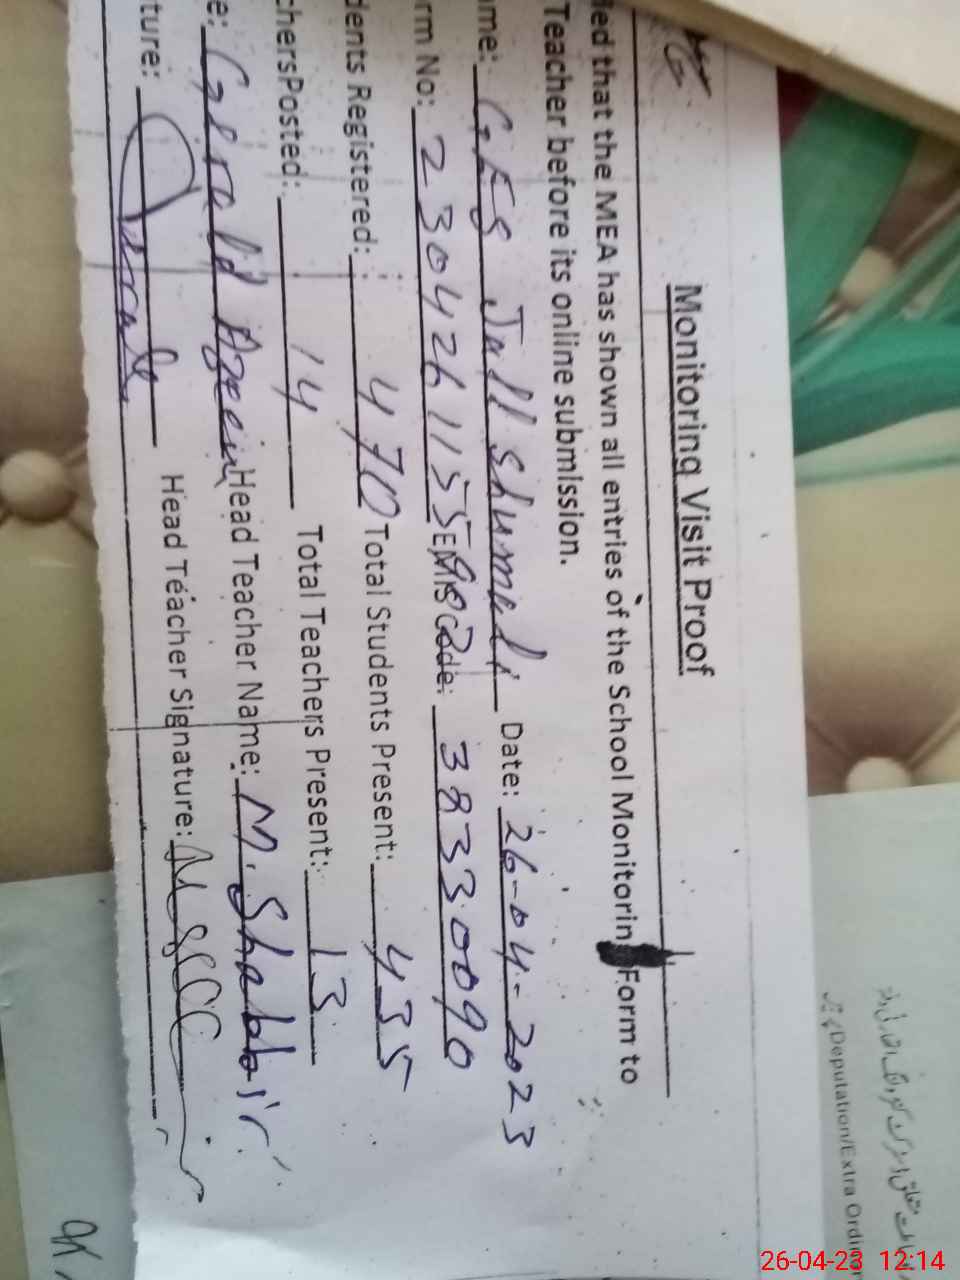 Monitoring Visit Proof
ied that the MEA has shown all entries of the School Monitorin Form to
Teacher before its online submission.
me: GES Jall Shumali Date: 26-04-2023
rm No: 2304261155 EMIS Code: 38330090
dents Registered: 470 Total Students Present: 435
chersPosted: 14 Total Teachers Present: 13
e: Head Teacher Name: M. Shabbir
ture: Head Teacher Signature:
Deputation/Extra Ordin
OK
26-04-23 12:14